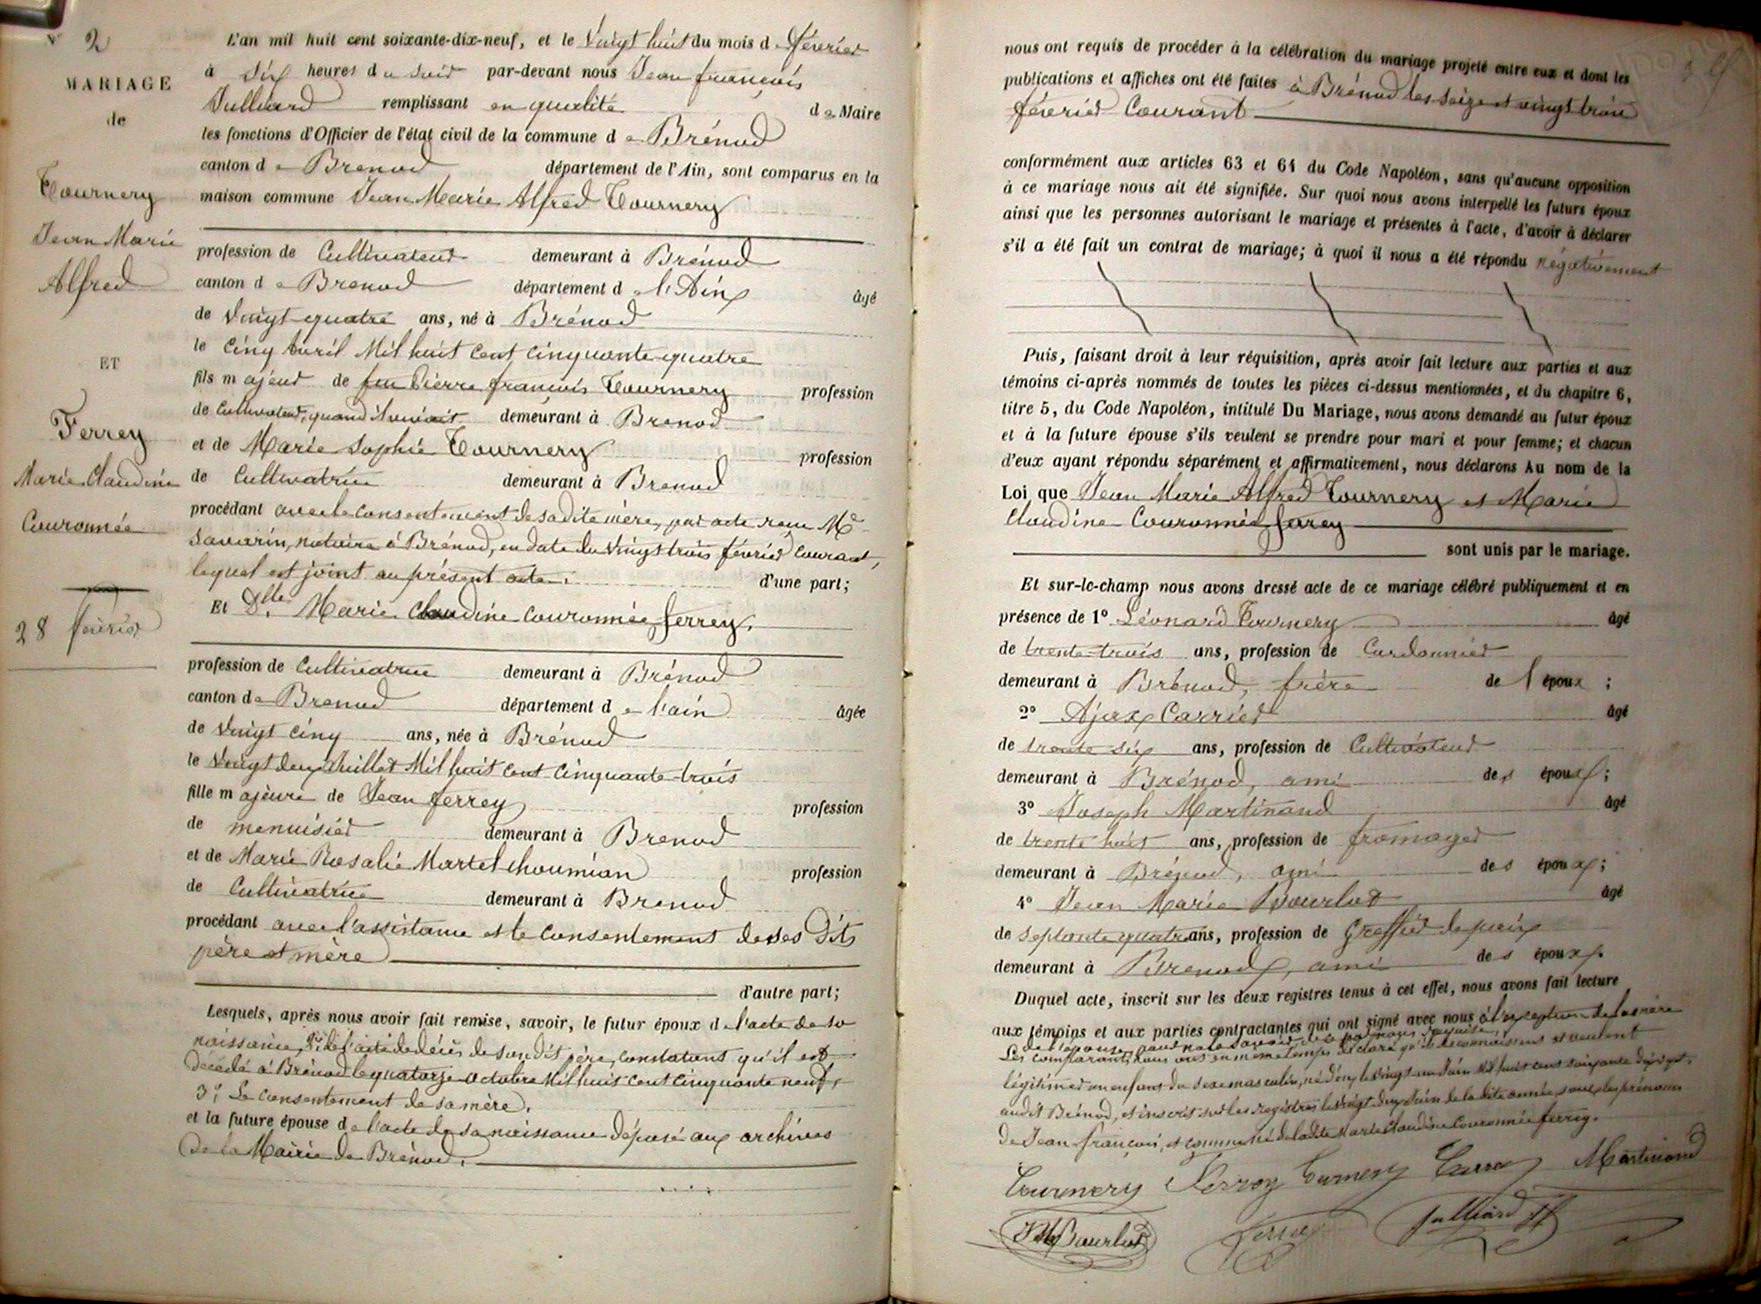 N° 2
MARIAGE
de
Tournery
Jean Marie
Alfred
ET
Ferrey
Marie Claudine
Couronnée
28 février
L'an mil huit cent soixante-dix-neuf, et le vingt huit du mois de février
à six heures du soir par-devant nous Jean françois
Julliard remplissant en qualité de Maire
les fonctions d'Officier de l'état civil de la commune de Brénod
canton de Brenod département de l'Ain, sont comparus en la
maison commune Jean Marie Alfred Tournery
profession de Cultivateur demeurant à Brénod
canton de Brenod département de l'Ain âgé
de vingt quatre ans, né à Brénod
le cinq avril Mil huit cent cinquante quatre
fils majeur de feu Pierre françois Tournery profession
de Cultivateur, quand il vivait demeurant à Brenod
et de Marie Sophie Tournery profession
de Cultivatrice demeurant à Brenod
procédant avec le consentement de sa dite mère, par acte reçu Me
Savarin, notaire à Brénod, en date du vingt trois février courant,
lequel est joint au présent acte. d'une part;
Et Dlle Marie Claudine Couronnée ferrey.
profession de Cultivatrice demeurant à Brénod
canton de Brenod département de l'ain âgée
de vingt cinq ans, née à Brénod
le vingt deux Juillet Mil huit cent cinquante trois
fille majeure de Jean ferrey profession
de menuisier demeurant à Brenod
et de Marie Rosalie Martel choumian profession
de Cultivatrice demeurant à Brenod
procédant avec l'assistance et le consentement de ses dits
père et mère
d'autre part;
Lesquels, après nous avoir fait remise, savoir, le futur époux de l'acte de sa
naissance, 2° de l'acte de décès de son dit père, constatant qu'il est
décédé à Brénod le quatorze octobre Mil huit cent cinquante neuf,
3° Le consentement de sa mère.
et la future épouse de l'acte de sa naissance déposé aux archives
de la Mairie de Brénod.
nous ont requis de procéder à la célébration du mariage projeté entre eux et dont les
publications et affiches ont été faites à Brénod les seize et vingt trois
février Courant
conformément aux articles 63 et 64 du Code Napoléon, sans qu'aucune opposition
à ce mariage nous ait été signifiée. Sur quoi nous avons interpellé les futurs époux
ainsi que les personnes autorisant le mariage et présentes à l'acte, d'avoir à déclarer
s'il a été fait un contrat de mariage; à quoi il nous a été répondu négativement
Puis, faisant droit à leur réquisition, après avoir fait lecture aux parties et aux
témoins ci-après nommés de toutes les pièces ci-dessus mentionnées, et du chapitre 6,
titre 5, du Code Napoléon, intitulé Du Mariage, nous avons demandé au futur époux
et à la future épouse s'ils veulent se prendre pour mari et pour femme; et chacun
d'eux ayant répondu séparément et affirmativement, nous déclarons Au nom de la
Loi que Jean Marie Alfred Tournery et Marie
Claudine Couronnée ferrey
sont unis par le mariage.
Et sur-le-champ nous avons dressé acte de ce mariage célébré publiquement et en
présence de 1° Léonard Tournery âgé
de trente-trois ans, profession de Cordonnier
demeurant à Brénod, frère de l'époux ;
2° Ajax Carrier âgé
de trente six ans, profession de Cultivateur
demeurant à Brénod, ami des époux ;
3° Joseph Martinand âgé
de trente huit ans, profession de fromager
demeurant à Brénod, ami des époux ;
4° Jean Marie Bourlot âgé
de septante quatre ans, profession de Greffier de paix
demeurant à Brenod, ami des époux.
Duquel acte, inscrit sur les deux registres tenus à cet effet, nous avons fait lecture
aux témoins et aux parties contractantes qui ont signé avec nous à l'exception de la mère
de l'épouse, pour ne le savoir de ce par nous requise.
Les comparants nous ont en même temps déclaré qu'ils reconnaissent et veulent
légitimer un enfant du sexe masculin, né d'eux le vingt un Juin Mil huit cent soixante dix sept,
audit Brénod, et inscrit sur les registres le vingt deux Juin de la dite année, sous les prénoms
de Jean françois, et comme né de la dite Marie Claudine Couronnée ferrey.
Tournery Ferrey Tournery Carrier Martinand
JM Bourlot ferrey Julliard